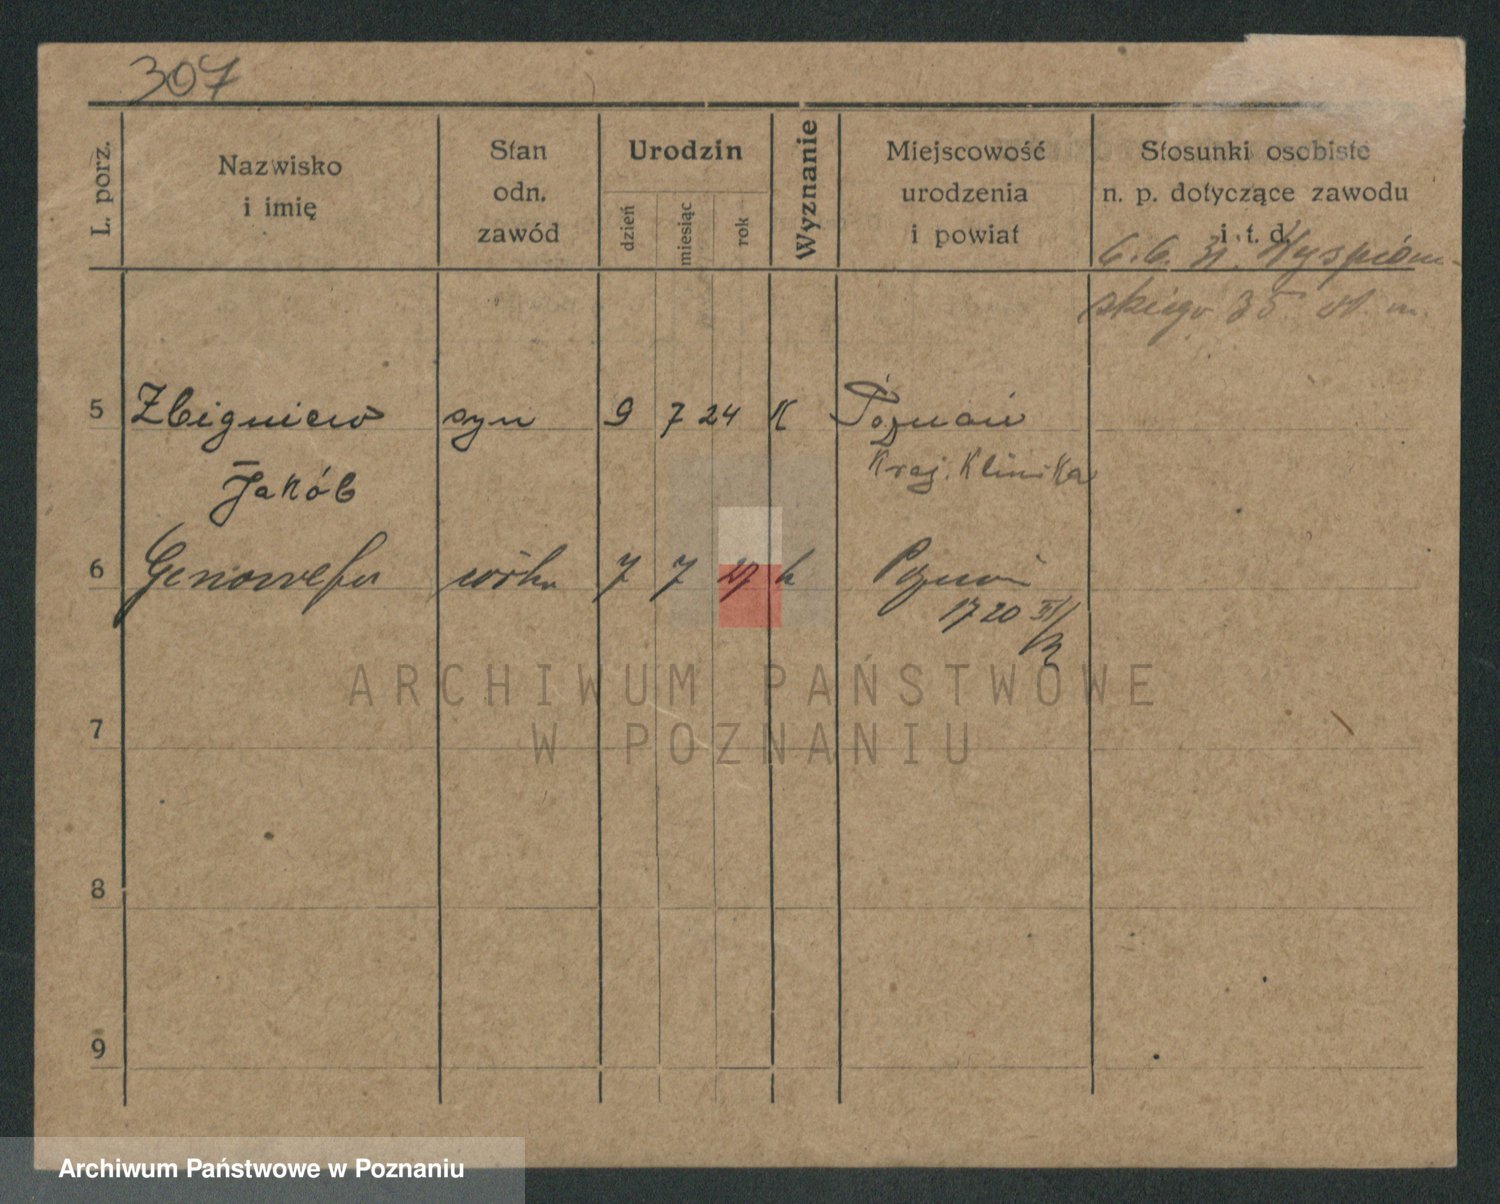 307
L. porz.
Nazwisko
i imię
Stan
odn.
zawód
Urodzin
dzień
miesiąc
rok
Wyznanie
Miejscowość
urodzenia
i powiat
Stosunki osobiste
n. p. dotyczące zawodu
i t. d.
6. 6. 31. Wyspiań-
skiego 35 m.
5 Zbigniew syn 9 7 24 K Poznań
Jakób Kraj. Klinika
6 Genowefa córka 7 7 27 k Poznań
1720 VI/
7
8
9
ARCHIWUM PAŃSTWOWE
W POZNANIU
Archiwum Państwowe w Poznaniu